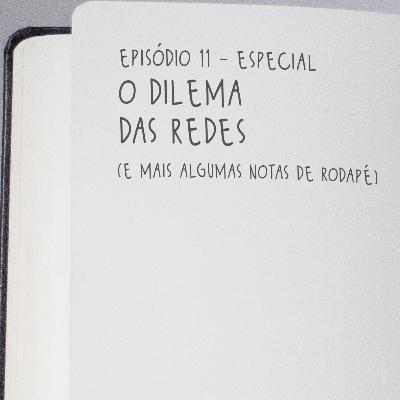 EPISÓDIO 11 - ESPECIAL
O DILEMA
DAS REDES
(E MAIS ALGUMAS NOTAS DE RODAPÉ)